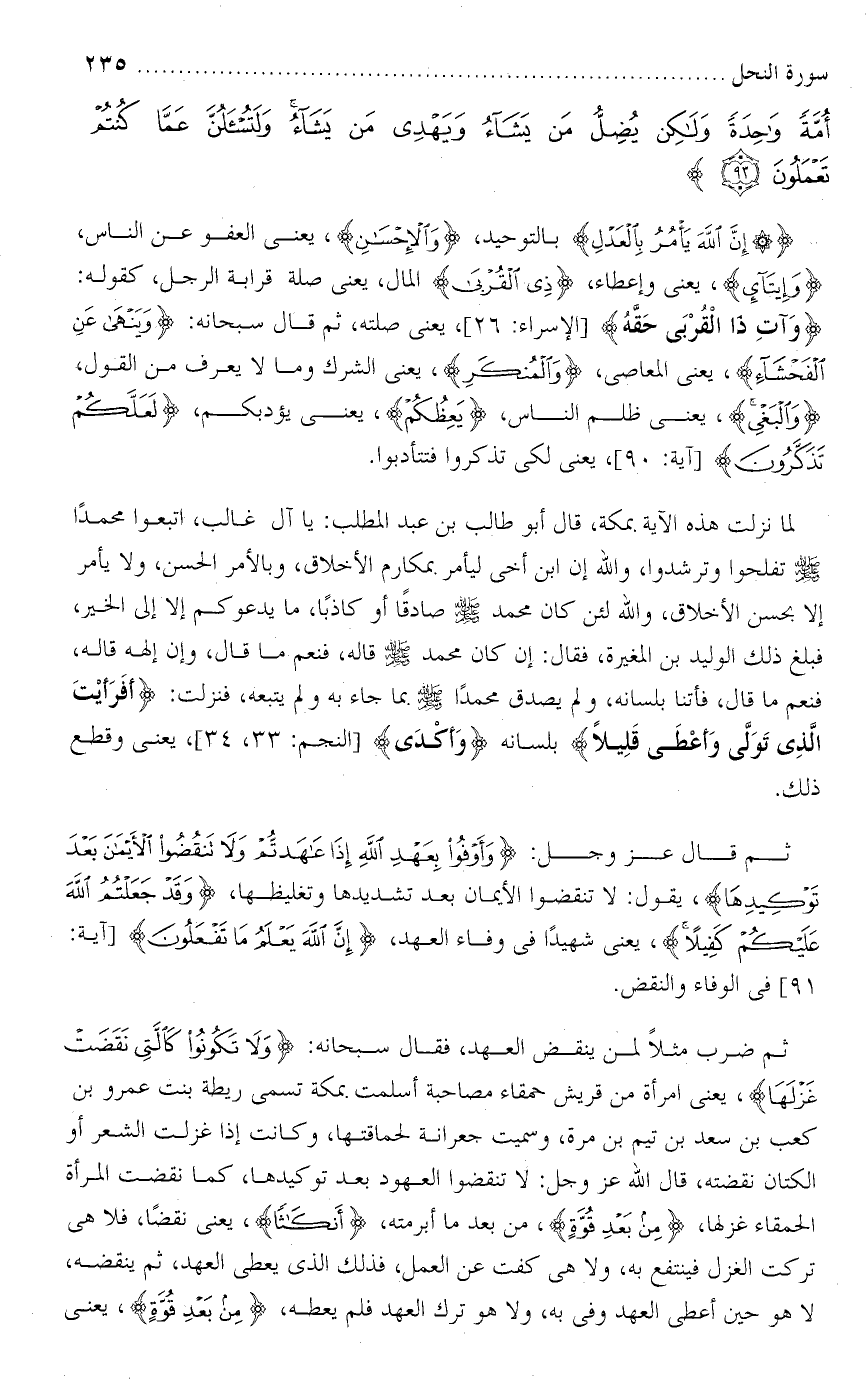 سورة النحل ........................................................................ ٢٣٥
أُمَّةً وَٰحِدَةً وَلَٰكِن يُضِلُّ مَن يَشَآءُ وَيَهْدِى مَن يَشَآءُ ۚ وَلَتُسْـَٔلُنَّ عَمَّا كُنتُمْ
تَعْمَلُونَ ٩٣ ﴾
﴿۞ إِنَّ ٱللَّهَ يَأْمُرُ بِٱلْعَدْلِ﴾ بالتوحيد، ﴿وَٱلْإِحْسَٰنِ﴾، يعنى العفو عن الناس،
﴿وَإِيتَآيِٕ﴾، يعنى وإعطاء، ﴿ذِى ٱلْقُرْبَىٰ﴾ المال، يعنى صلة قرابة الرجل، كقوله:
﴿وَآتِ ذَا الْقُرْبَى حَقَّهُ﴾ [الإسراء: ٢٦]، يعنى صلته، ثم قال سبحانه: ﴿وَيَنْهَىٰ عَنِ
ٱلْفَحْشَآءِ﴾، يعنى المعاصى، ﴿وَٱلْمُنكَرِ﴾، يعنى الشرك وما لا يعرف من القول،
﴿وَٱلْبَغْىِ ۚ﴾، يعنى ظلم الناس، ﴿يَعِظُكُمْ﴾، يعنى يؤدبكم، ﴿لَعَلَّكُمْ
تَذَكَّرُونَ﴾ [آية: ٩٠]، يعنى لكى تذكروا فتتأدبوا.
لما نزلت هذه الآية بمكة، قال أبو طالب بن عبد المطلب: يا آل غالب، اتبعوا محمدًا
ﷺ تفلحوا وترشدوا، والله إن ابن أخى ليأمر بمكارم الأخلاق، وبالأمر الحسن، ولا يأمر
إلا بحسن الأخلاق، والله لئن كان محمد ﷺ صادقًا أو كاذبًا، ما يدعوكم إلا إلى الخير،
فبلغ ذلك الوليد بن المغيرة، فقال: إن كان محمد ﷺ قاله، فنعم ما قال، وإن إلهه قاله،
فنعم ما قال، فأتنا بلسانه، ولم يصدق محمدًا ﷺ بما جاء به ولم يتبعه، فنزلت: ﴿أَفَرَأَيْتَ
الَّذِى تَوَلَّى وَأَعْطَى قَلِيلاً﴾ بلسانه ﴿وَأَكْدَى﴾ [النجم: ٣٣، ٣٤]، يعنى وقطع
ذلك.
ثم قال عز وجل: ﴿وَأَوْفُوا۟ بِعَهْدِ ٱللَّهِ إِذَا عَٰهَدتُّمْ وَلَا تَنقُضُوا۟ ٱلْأَيْمَٰنَ بَعْدَ
تَوْكِيدِهَا﴾، يقول: لا تنقضوا الأيمان بعد تشديدها وتغليظها، ﴿وَقَدْ جَعَلْتُمُ ٱللَّهَ
عَلَيْكُمْ كَفِيلًا ۚ﴾، يعنى شهيدًا فى وفاء العهد، ﴿إِنَّ ٱللَّهَ يَعْلَمُ مَا تَفْعَلُونَ﴾ [آية:
٩١] فى الوفاء والنقض.
ثم ضرب مثلاً لمن ينقض العهد، فقال سبحانه: ﴿وَلَا تَكُونُوا۟ كَٱلَّتِى نَقَضَتْ
غَزْلَهَا﴾، يعنى امرأة من قريش حمقاء مصاحبة أسلمت بمكة تسمى ريطة بنت عمرو بن
كعب بن سعد بن تيم بن مرة، وسميت جعرانة لحماقتها، وكانت إذا غزلت الشعر أو
الكتان نقضته، قال الله عز وجل: لا تنقضوا العهود بعد توكيدها، كما نقضت المرأة
الحمقاء غزلها، ﴿مِنۢ بَعْدِ قُوَّةٍ﴾، من بعد ما أبرمته، ﴿أَنكَٰثًا﴾، يعنى نقضًا، فلا هى
تركت الغزل فينتفع به، ولا هى كفت عن العمل، فذلك الذى يعطى العهد، ثم ينقضه،
لا هو حين أعطى العهد وفى به، ولا هو ترك العهد فلم يعطه، ﴿مِنۢ بَعْدِ قُوَّةٍ﴾، يعنى